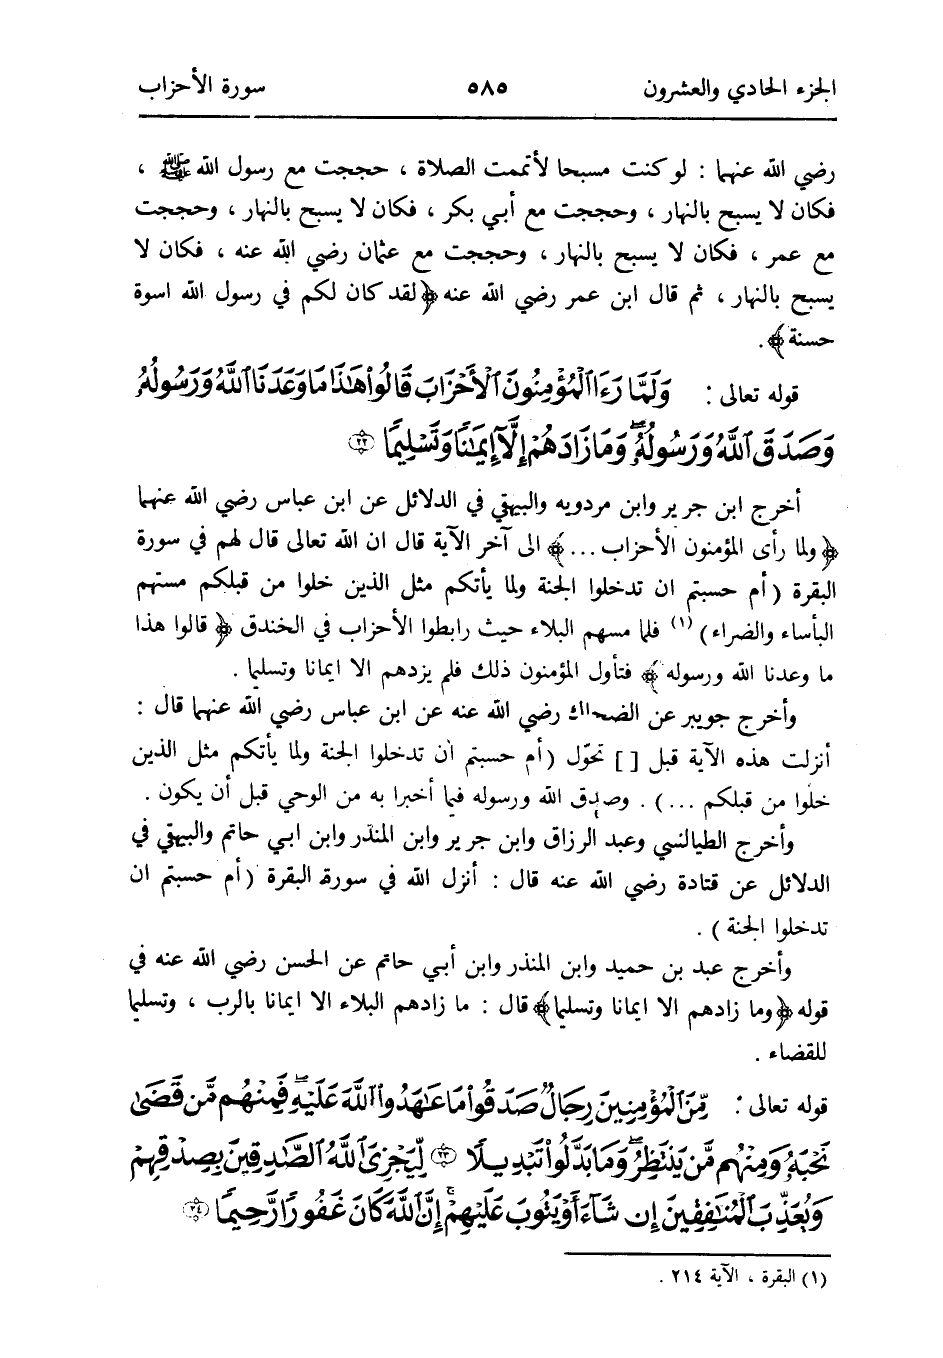 الجزء الحادي والعشرون ٥٨٥ سورة الأحزاب
رضي الله عنهما : لو كنت مسبحا لأتممت الصلاة ، حججت مع رسول الله ﷺ ،
فكان لا يسبح بالنهار ، وحججت مع أبي بكر ، فكان لا يسبح بالنهار ، وحججت
مع عمر ، فكان لا يسبح بالنهار ، وحججت مع عثمان رضي الله عنه ، فكان لا
يسبح بالنهار ، ثم قال ابن عمر رضي الله عنه ﴿لقد كان لكم في رسول الله اسوة
حسنة﴾ .
قوله تعالى : وَلَمَّا رَءَا ٱلْمُؤْمِنُونَ ٱلْأَحْزَابَ قَالُوا۟ هَٰذَا مَا وَعَدَنَا ٱللَّهُ وَرَسُولُهُۥ
وَصَدَقَ ٱللَّهُ وَرَسُولُهُۥۚ وَمَا زَادَهُمْ إِلَّآ إِيمَٰنًا وَتَسْلِيمًا ﴿٢٢﴾
أخرج ابن جرير وابن مردويه والبيهقي في الدلائل عن ابن عباس رضي الله عنهما
﴿ولما رأى المؤمنون الأحزاب ...﴾ الى آخر الآية قال ان الله تعالى قال لهم في سورة
البقرة (أم حسبتم ان تدخلوا الجنة ولما يأتكم مثل الذين خلوا من قبلكم مستهم
البأساء والضراء) (١) فلما مسهم البلاء حيث رابطوا الأحزاب في الخندق ﴿ قالوا هذا
ما وعدنا الله ورسوله ﴾ فتأول المؤمنون ذلك فلم يزدهم الا ايمانا وتسليما .
وأخرج جويبر عن الضحاك رضي الله عنه عن ابن عباس رضي الله عنهما قال :
أنزلت هذه الآية قبل [ ] تحوّل (أم حسبتم ان تدخلوا الجنة ولما يأتكم مثل الذين
خلوا من قبلكم ...) . وصدق الله ورسوله فيما أخبرا به من الوحي قبل أن يكون .
وأخرج الطيالسي وعبد الرزاق وابن جرير وابن المنذر وابن ابي حاتم والبيهقي في
الدلائل عن قتادة رضي الله عنه قال : أنزل الله في سورة البقرة (أم حسبتم ان
تدخلوا الجنة ) .
وأخرج عبد بن حميد وابن المنذر وابن أبي حاتم عن الحسن رضي الله عنه في
قوله ﴿وما زادهم الا ايمانا وتسليما﴾ قال : ما زادهم البلاء الا ايمانا بالرب ، وتسليما
للقضاء .
قوله تعالى : مِّنَ ٱلْمُؤْمِنِينَ رِجَالٌ صَدَقُوا۟ مَا عَٰهَدُوا۟ ٱللَّهَ عَلَيْهِۖ فَمِنْهُم مَّن قَضَىٰ
نَحْبَهُۥ وَمِنْهُم مَّن يَنتَظِرُۖ وَمَا بَدَّلُوا۟ تَبْدِيلًا ﴿٢٣﴾ لِّيَجْزِىَ ٱللَّهُ ٱلصَّٰدِقِينَ بِصِدْقِهِمْ
وَيُعَذِّبَ ٱلْمُنَٰفِقِينَ إِن شَآءَ أَوْ يَتُوبَ عَلَيْهِمْۚ إِنَّ ٱللَّهَ كَانَ غَفُورًا رَّحِيمًا ﴿٢٤﴾
(١) البقرة ، الآية ٢١٤ .